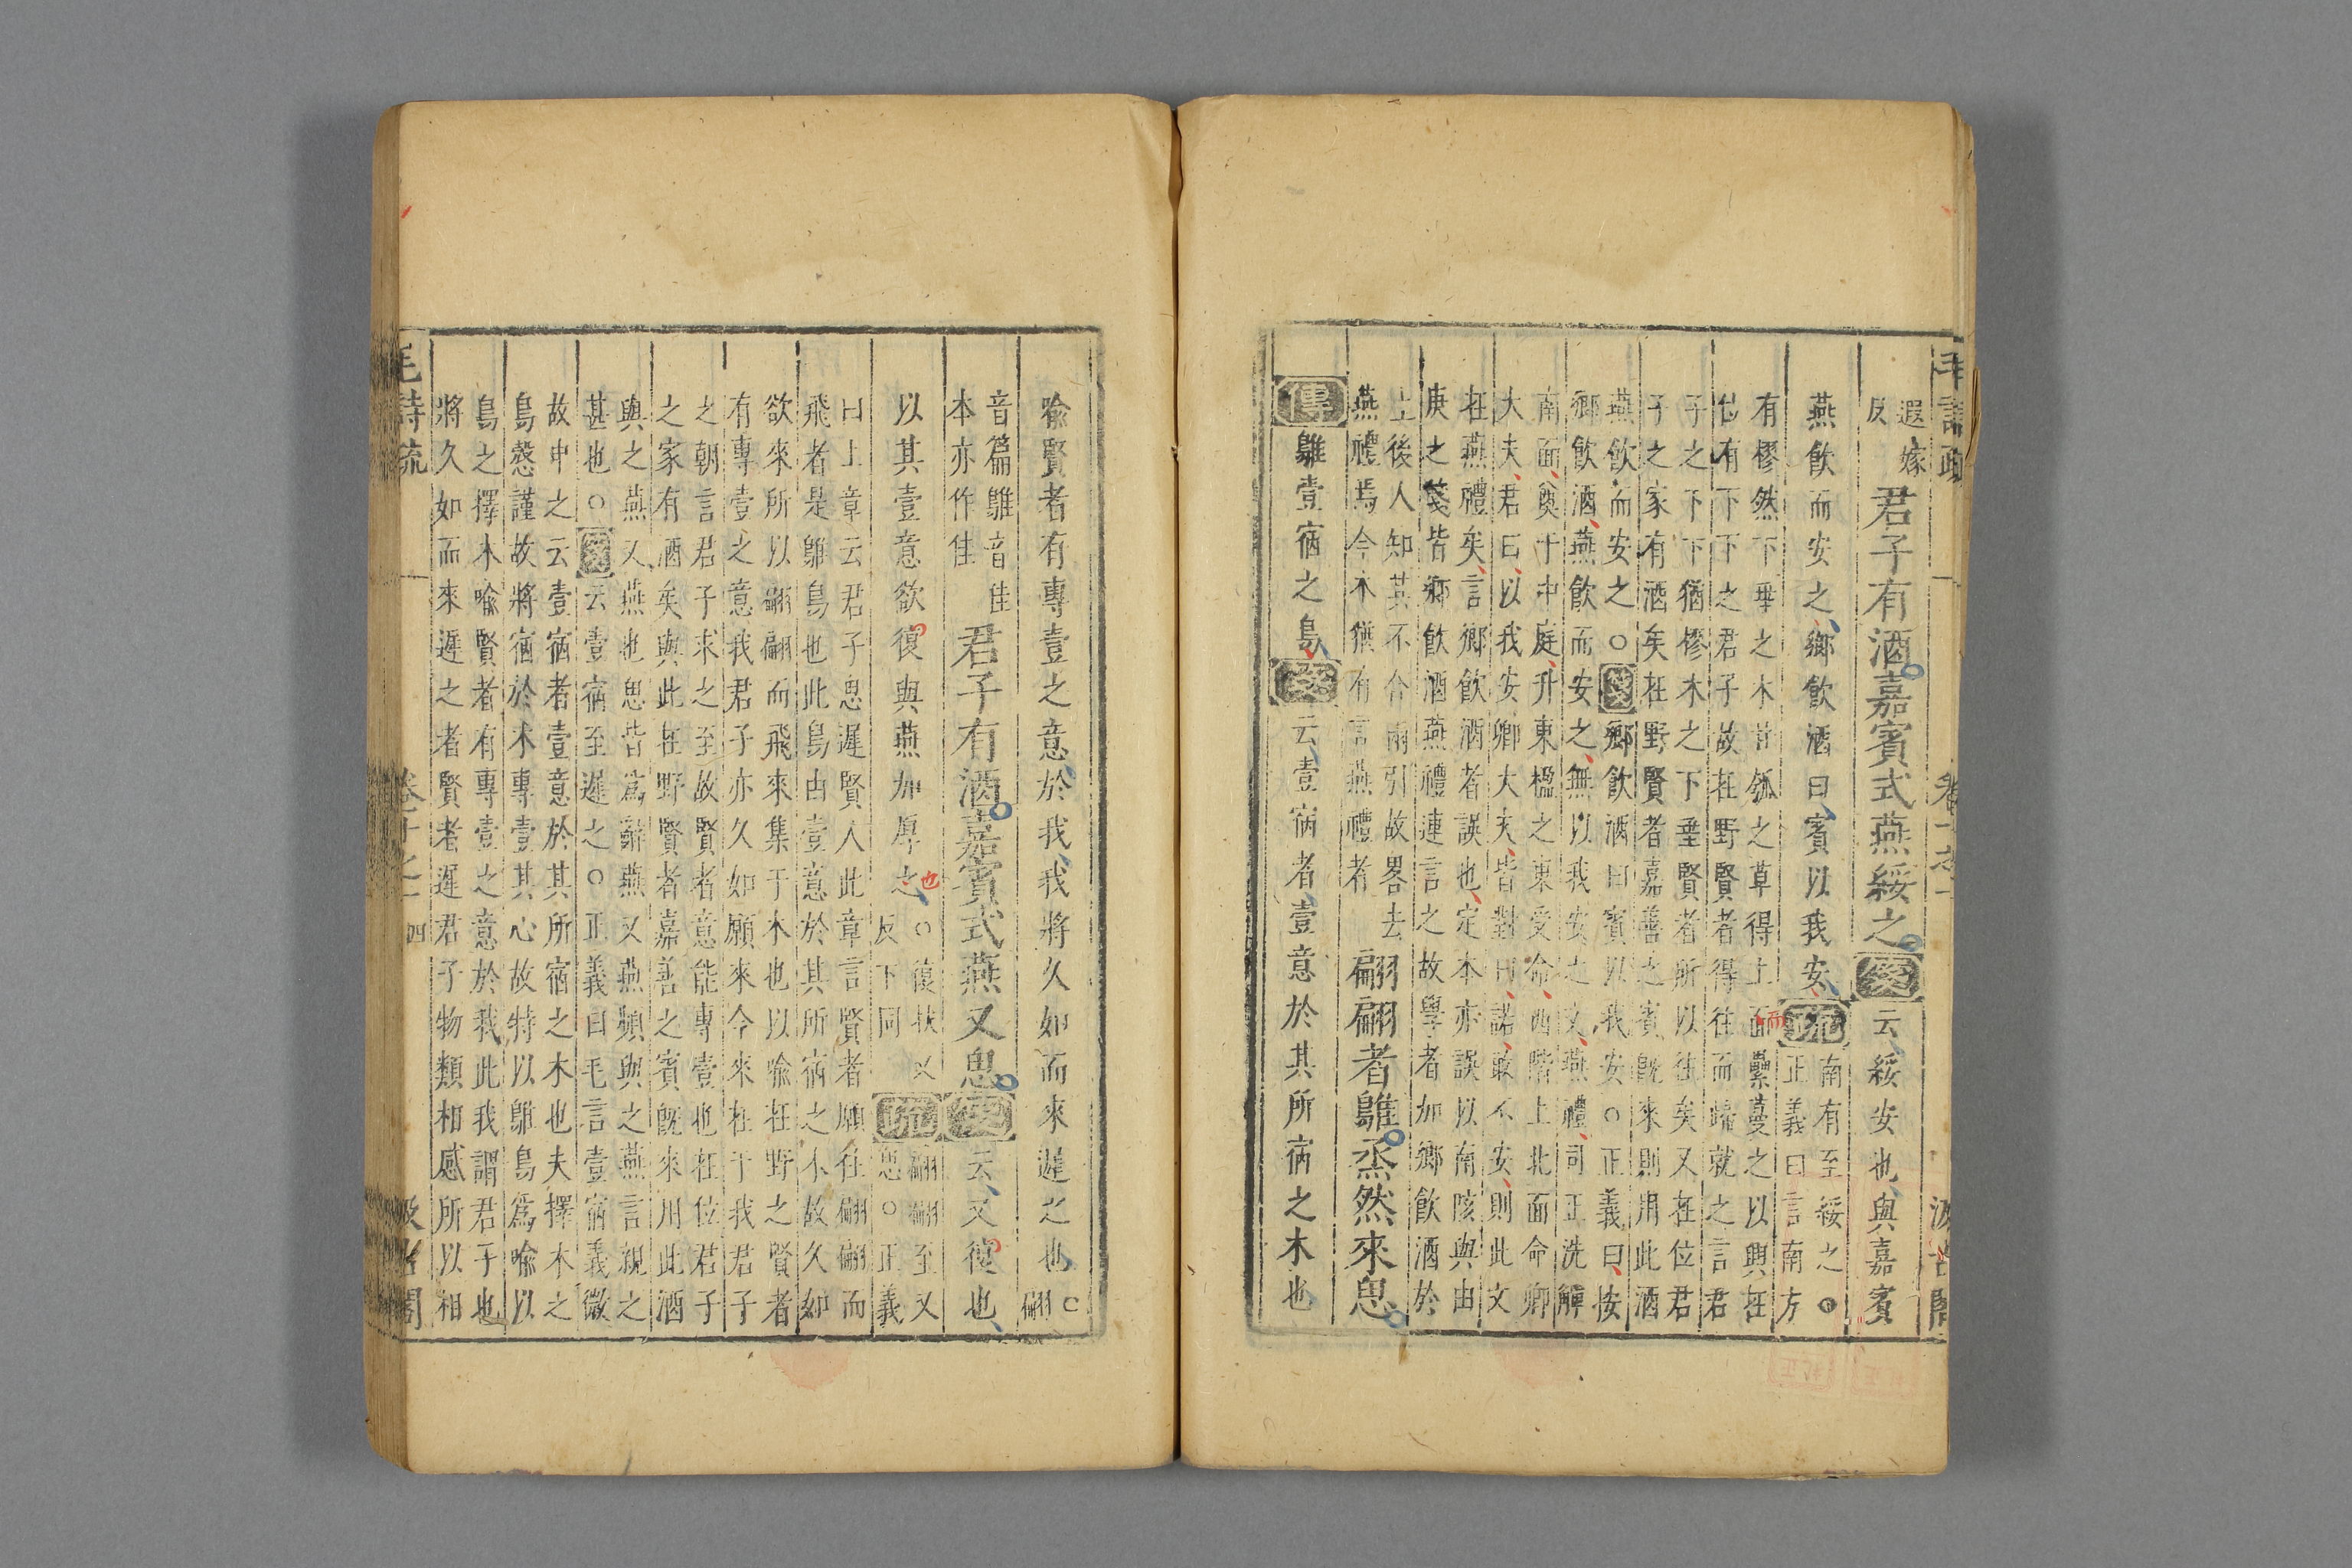 毛詩疏 卷十之一 汲古閣
遐嫁
反
君子有酒嘉賓式燕綏之箋云綏安也與嘉賓
燕飲而安之鄉飲酒曰賓以我安疏
南有至綏之○
正義曰言南方
有樛然下垂之木昔瓠之草得上而纍蔓之以興在
位有下下之君子故在野賢者得往而歸就之言君
子之下下猶樛木之下垂賢者所以往矣又在位君
子之家有酒矣在野賢者嘉善之賓旣來則用此酒
燕飲而安之○箋鄉飲酒曰賓以我安○正義曰按
鄉飲酒燕飲而安之無以我安之文燕禮司正洗觶
南面奠于中庭升東楹之東受命西階上北面命卿
大夫君曰以我安卿大夫皆對曰諾敢不安則此文
在燕禮矣言鄉飲酒者誤也定本亦誤以南陔與由
庚之箋皆鄉飲酒燕禮連言之故學者加鄉飲酒於
上後人知其不合兩引故畧去
燕禮焉今本猶有言燕禮者
翩翩者鵻烝然來思
傳鵻壹宿之鳥箋云壹宿者壹意於其所宿之木也
喻賢者有專壹之意於我我將久如而來遲之也
○
翩
音篇鵻音隹
本亦作隹
君子有酒嘉賓式燕又思箋云又復也
以其壹意欲復與燕加厚之也
○復扶又
反下同
疏
翩翩至又
思○正義
曰上章云君子思遲賢人此章言賢者願往翩翩而
飛者是鵻鳥也此鳥由壹意於其所宿之木故久如
欲來所以翩翩而飛來集于木也以喻在野之賢者
有專壹之意我君子亦久如願來今來在于我君子
之朝言君子求之至故賢者意能專壹也在位君子
之家有酒矣與此在野賢者嘉善之賓旣來用此酒
與之燕又燕也思皆爲辭燕又燕頻與之燕言親之
甚也○箋云壹宿至遲之○正義曰毛言壹宿義微
故申之云壹宿者壹意於其所宿之木也夫擇木之
鳥慤謹故將宿於木專壹其心故特以鵻鳥爲喻以
鳥之擇木喻賢者有專壹之意於我此我謂君子也
將久如而來遲之者賢者遲君子物類相感所以相
毛詩疏 卷十之一 四 汲古閣